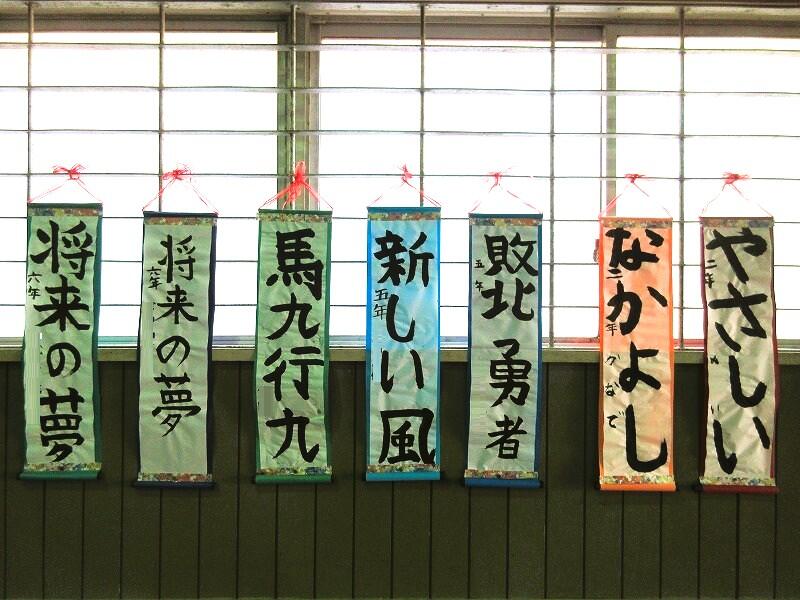 将来の夢
六年
将来の夢
六年
馬九行九
新しい風
五年
敗北勇者
五年
なかよし
二年
やさしい
二年